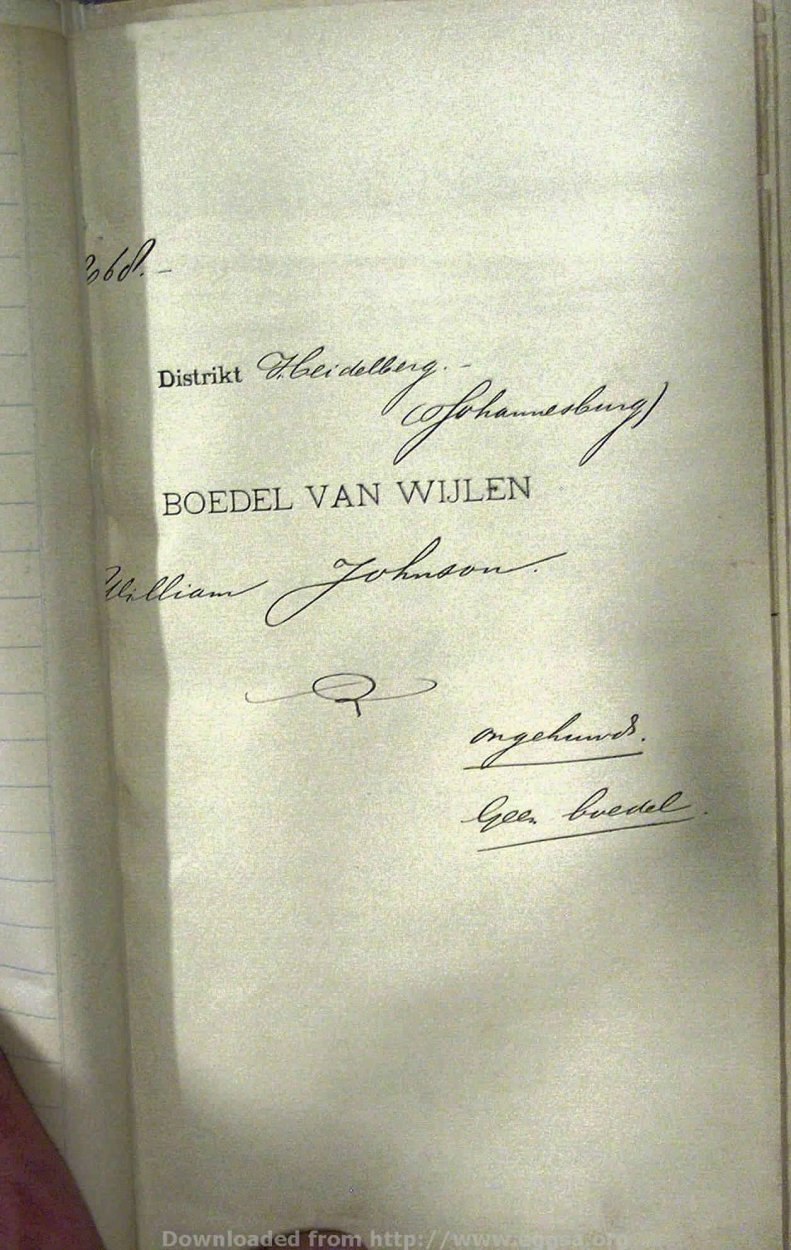 2068. -
Distrikt Heidelberg. -
(Johannesburg)
BOEDEL VAN WIJLEN
William Johnson.
ongehuwd.
Geen boedel.
Downloaded from http://www.eggsa.org